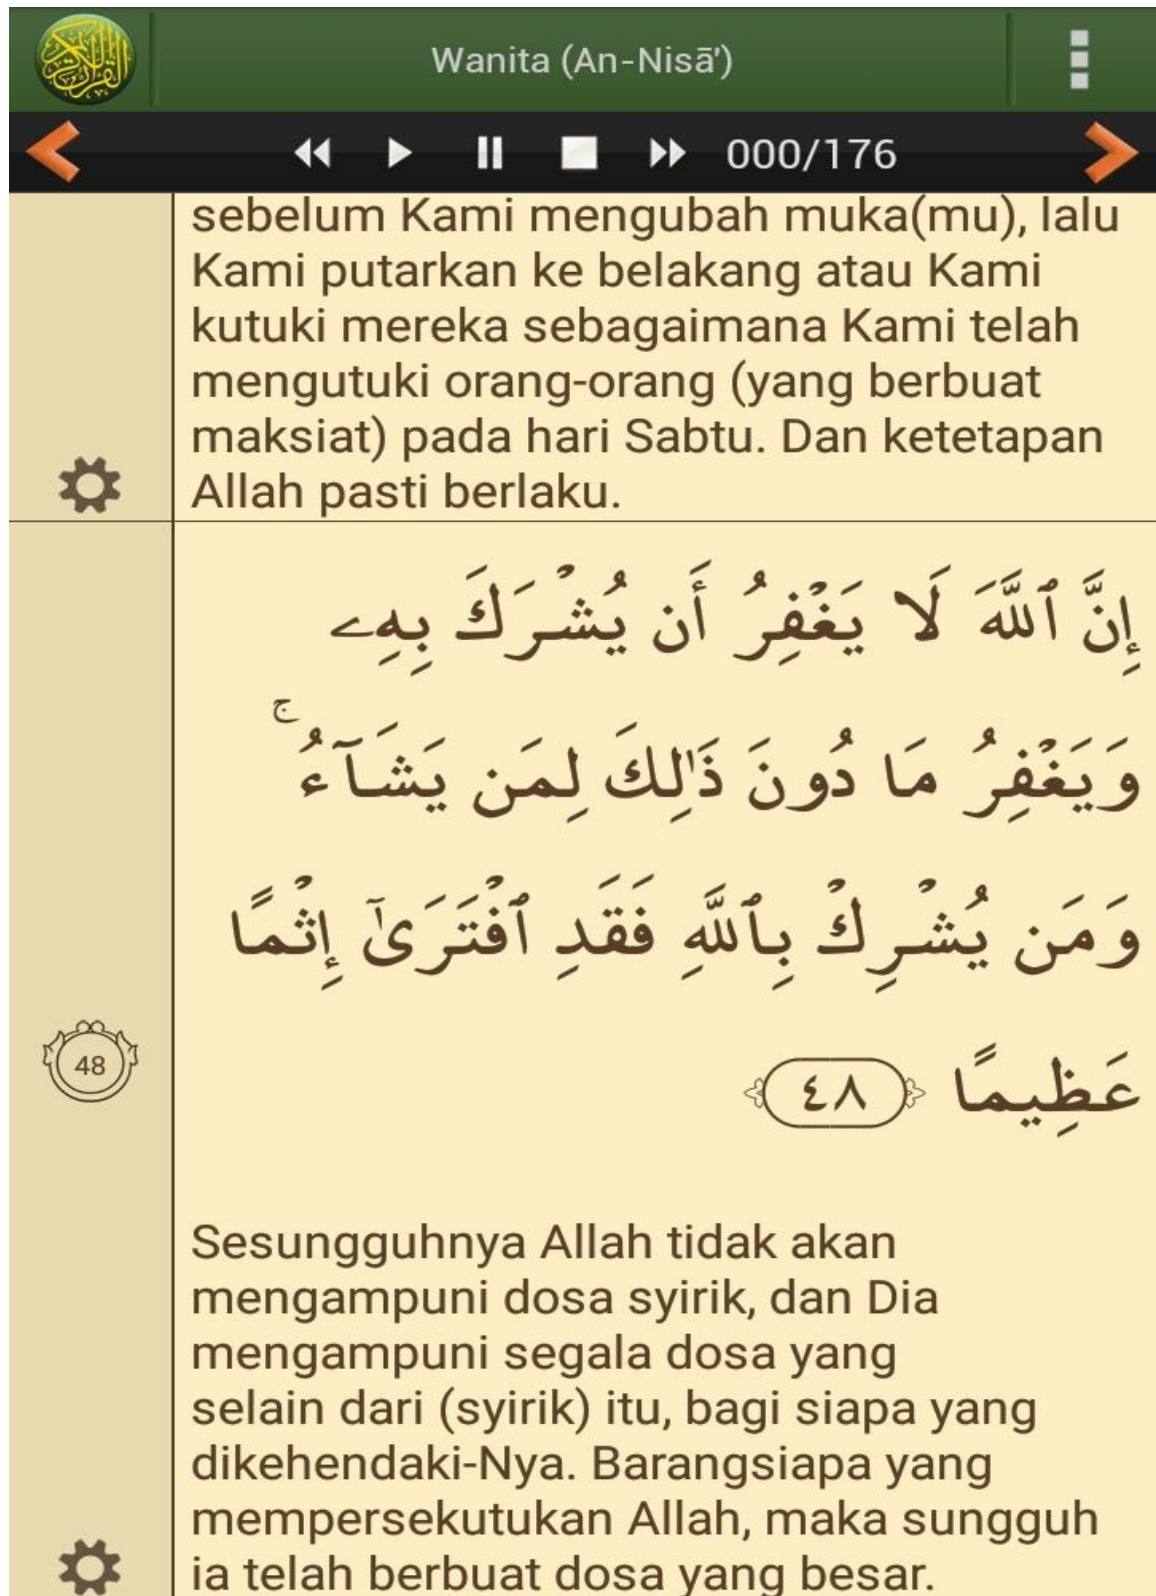 Wanita (An-Nisā')
000/176
sebelum Kami mengubah muka(mu), lalu
Kami putarkan ke belakang atau Kami
kutuki mereka sebagaimana Kami telah
mengutuki orang-orang (yang berbuat
maksiat) pada hari Sabtu. Dan ketetapan
Allah pasti berlaku.
إِنَّ ٱللَّهَ لَا يَغْفِرُ أَن يُشْرَكَ بِهِۦ
وَيَغْفِرُ مَا دُونَ ذَٰلِكَ لِمَن يَشَآءُ ۚ
وَمَن يُشْرِكْ بِٱللَّهِ فَقَدِ ٱفْتَرَىٰٓ إِثْمًا
عَظِيمًا ﴿٤٨﴾
48
Sesungguhnya Allah tidak akan
mengampuni dosa syirik, dan Dia
mengampuni segala dosa yang
selain dari (syirik) itu, bagi siapa yang
dikehendaki-Nya. Barangsiapa yang
mempersekutukan Allah, maka sungguh
ia telah berbuat dosa yang besar.